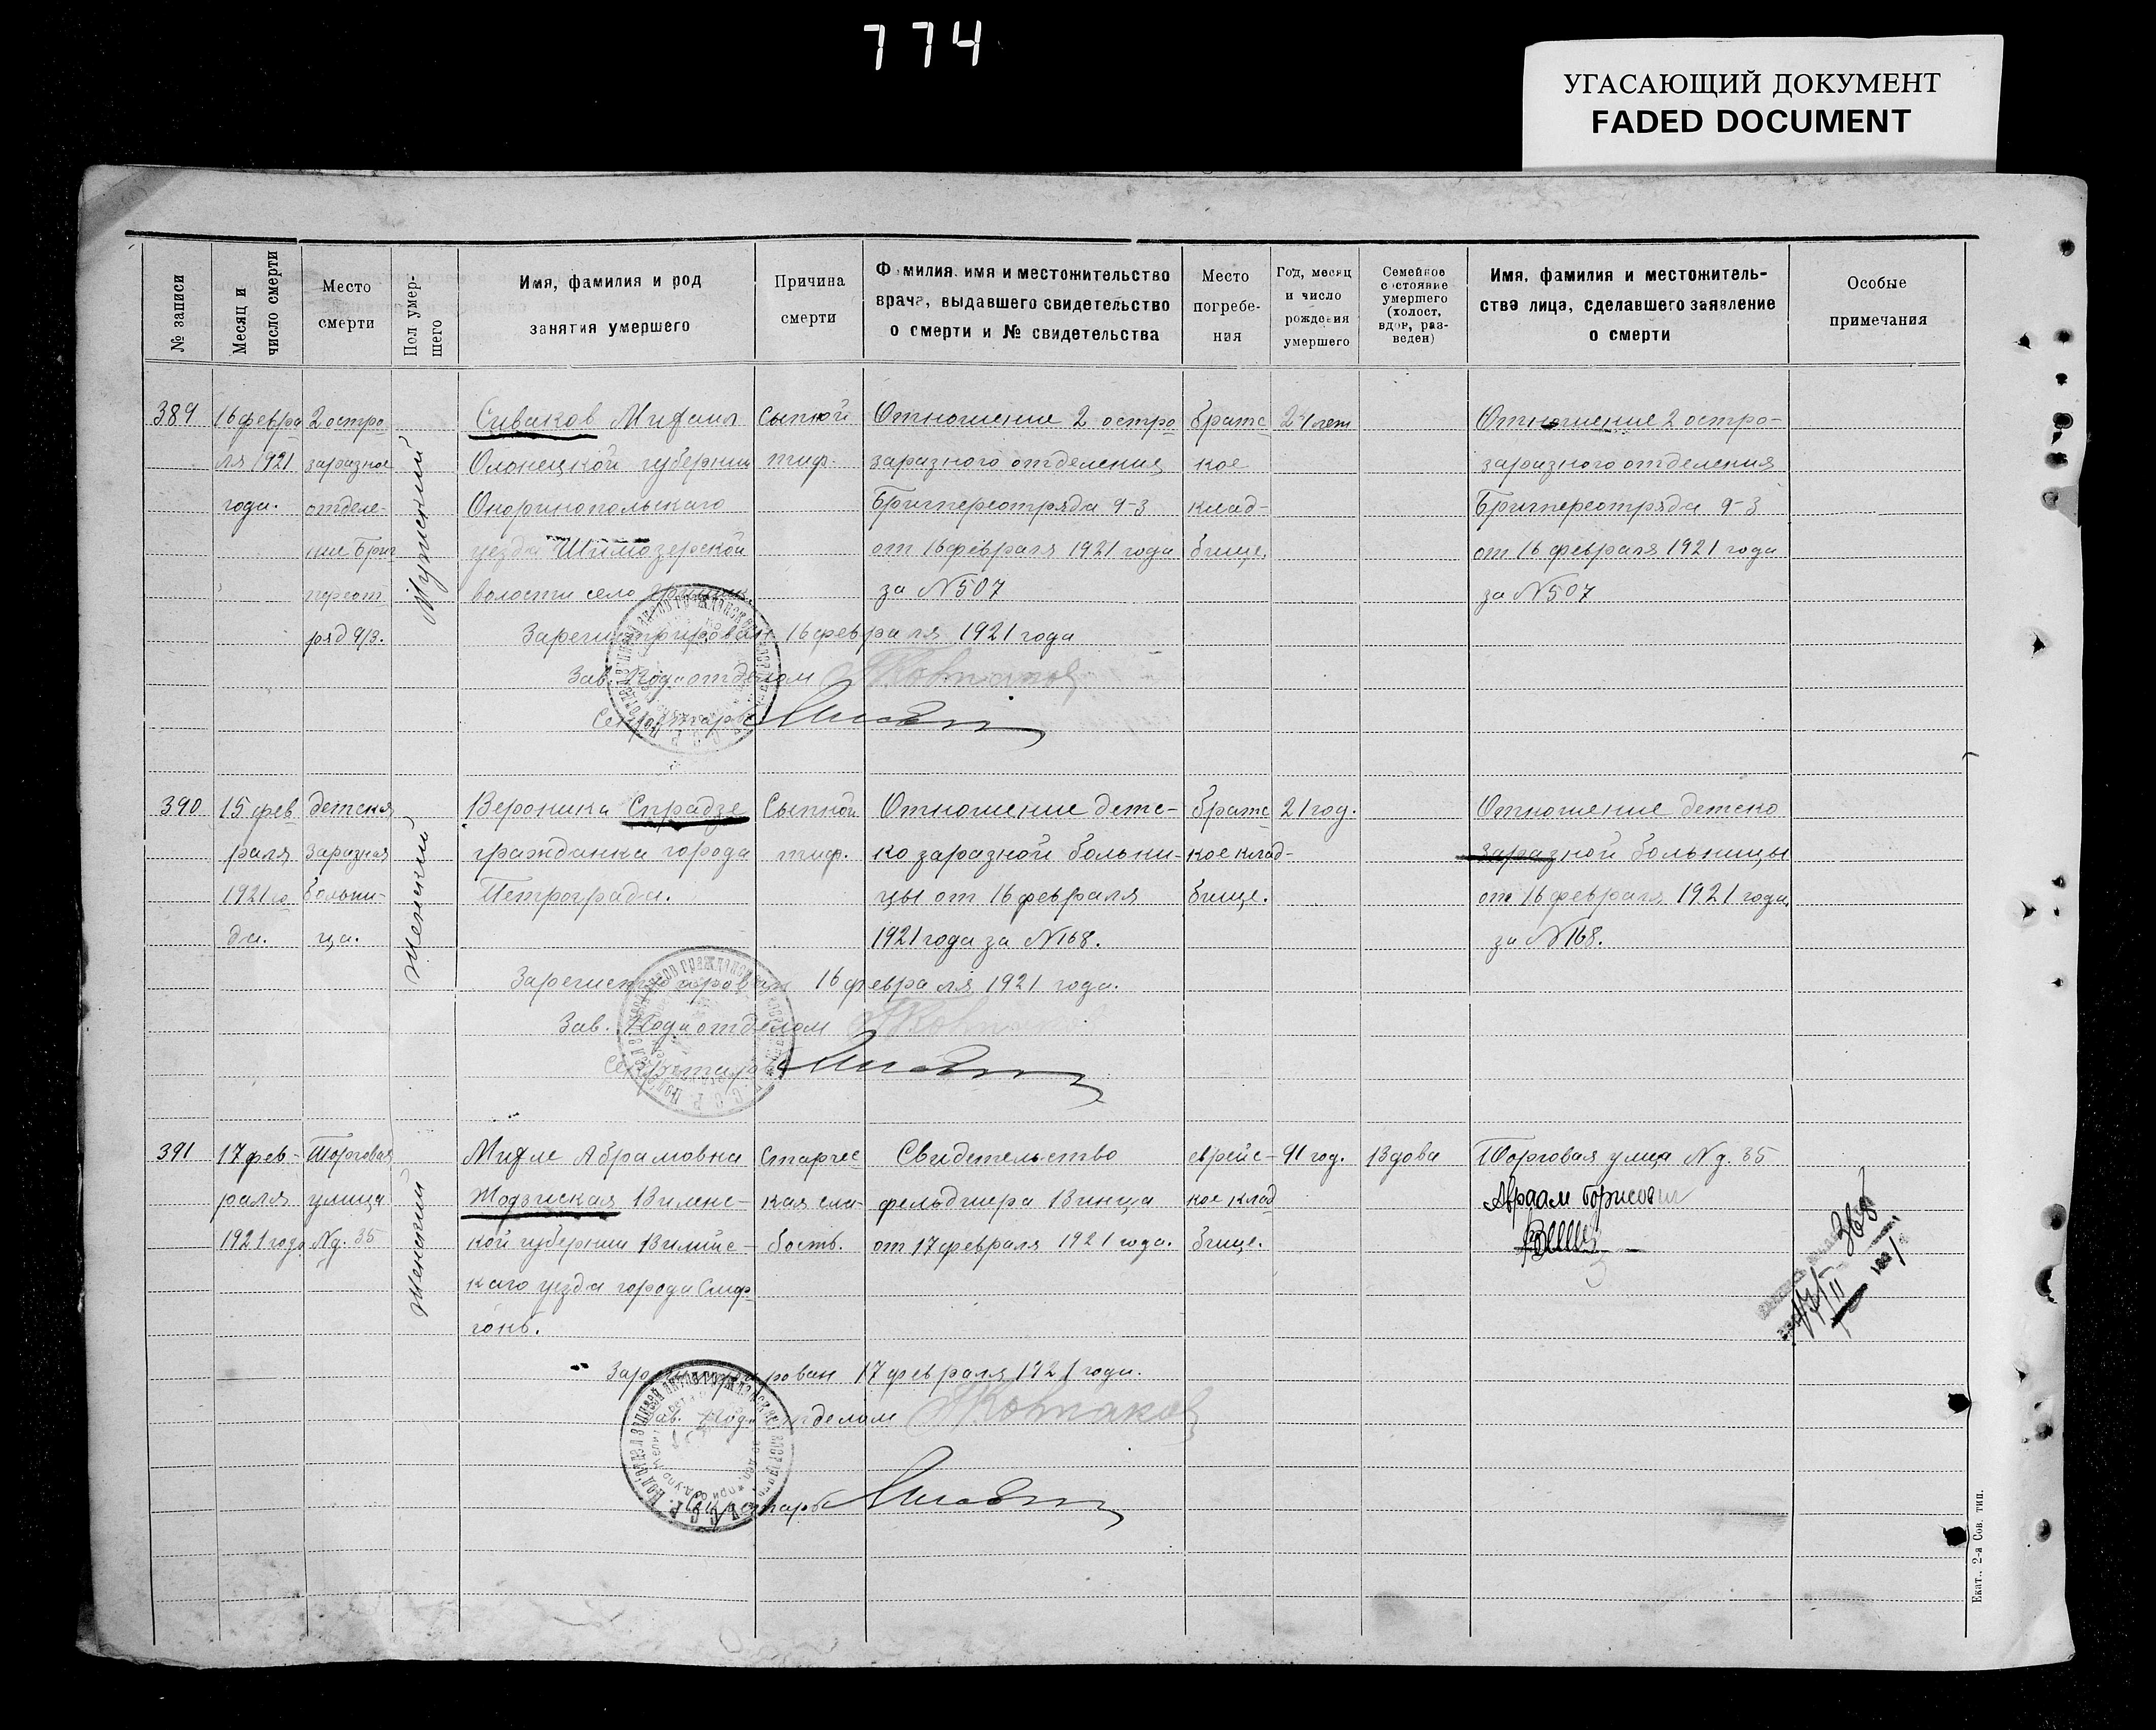 774
УГАСАЮЩИЙ ДОКУМЕНТ
FADED DOCUMENT
№ записи
Месяц и
число смерти
Место
смерти
Пол умер-
шего
Имя, фамилия и род
занятия умершего
Причина
смерти
Фамилия, имя и местожительство
врача, выдавшего свидетельство
о смерти и № свидетельства
Место
погребе-
ния
Год, месяц
и число
рождения
умершего
Семейное
состояние
умершего
(холост,
вдов, раз-
веден)
Имя, фамилия и местожитель-
ства лица, сделавшего заявление
о смерти
Особые
примечания
389
16 февра
ля 1921
года.
2 остро
заразное
отделе-
ние Бриг
переот
ряд 9/3.
Мужеский
Сиваков Михаил
Олонецкой губернии
уезда Шимозерской
волости село
Сыпной
тиф.
Отношение 2 остро
заразного отделения
Бригпереотряда 9-3
от 16 февраля 1921 года
за N 507
братс
кое
клад-
бище.
24 лет
Отношение 2 остро-
заразного отделения
Бригпереотряда 9-3
от 16 февраля 1921 года
за N 507
Зарегистрирован 16 февраля 1921 года
Зав. Подотделом
Секретарь
390
15 фев
раля
1921 го
да.
детская
заразная
больни-
ца.
Женский
Вероника Спрадзе
гражданка города
Петрограда.
Сыпной
тиф.
Отношение детс-
ко заразной больни-
цы от 16 февраля
1921 года за N 168.
братс
кое клад-
бище.
21 год.
Отношение детско
заразной больницы
от 16 февраля 1921 года
за N 168.
Зарегистрирован 16 февраля 1921 года.
Зав. Подотделом
Секретарь
391
17 фев-
раля
1921 года
Торговая
улица
N д. 35
Женский
Михле Абрамовна
Жодзиская Виленс-
кой губернии Вилийс-
каго уезда города Смор-
гонь.
Старчес
кая сла-
бость.
Свидетельство
фельдшера Винца
от 17 февраля 1921 года.
еврейс-
кое клад
бище.
91 год.
Вдова
Торговая улица N д. 35
Авраам Борисович
368
17/II 1921
Зарегистрирован 17 февраля 1921 года.
Зав. Подотделом Колпаков
Секретарь
Екат., 2-я Сов. тип.